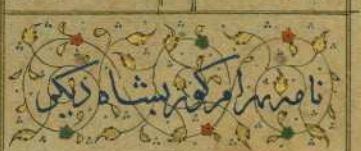 نامه بهرام کور بشاه دیکر